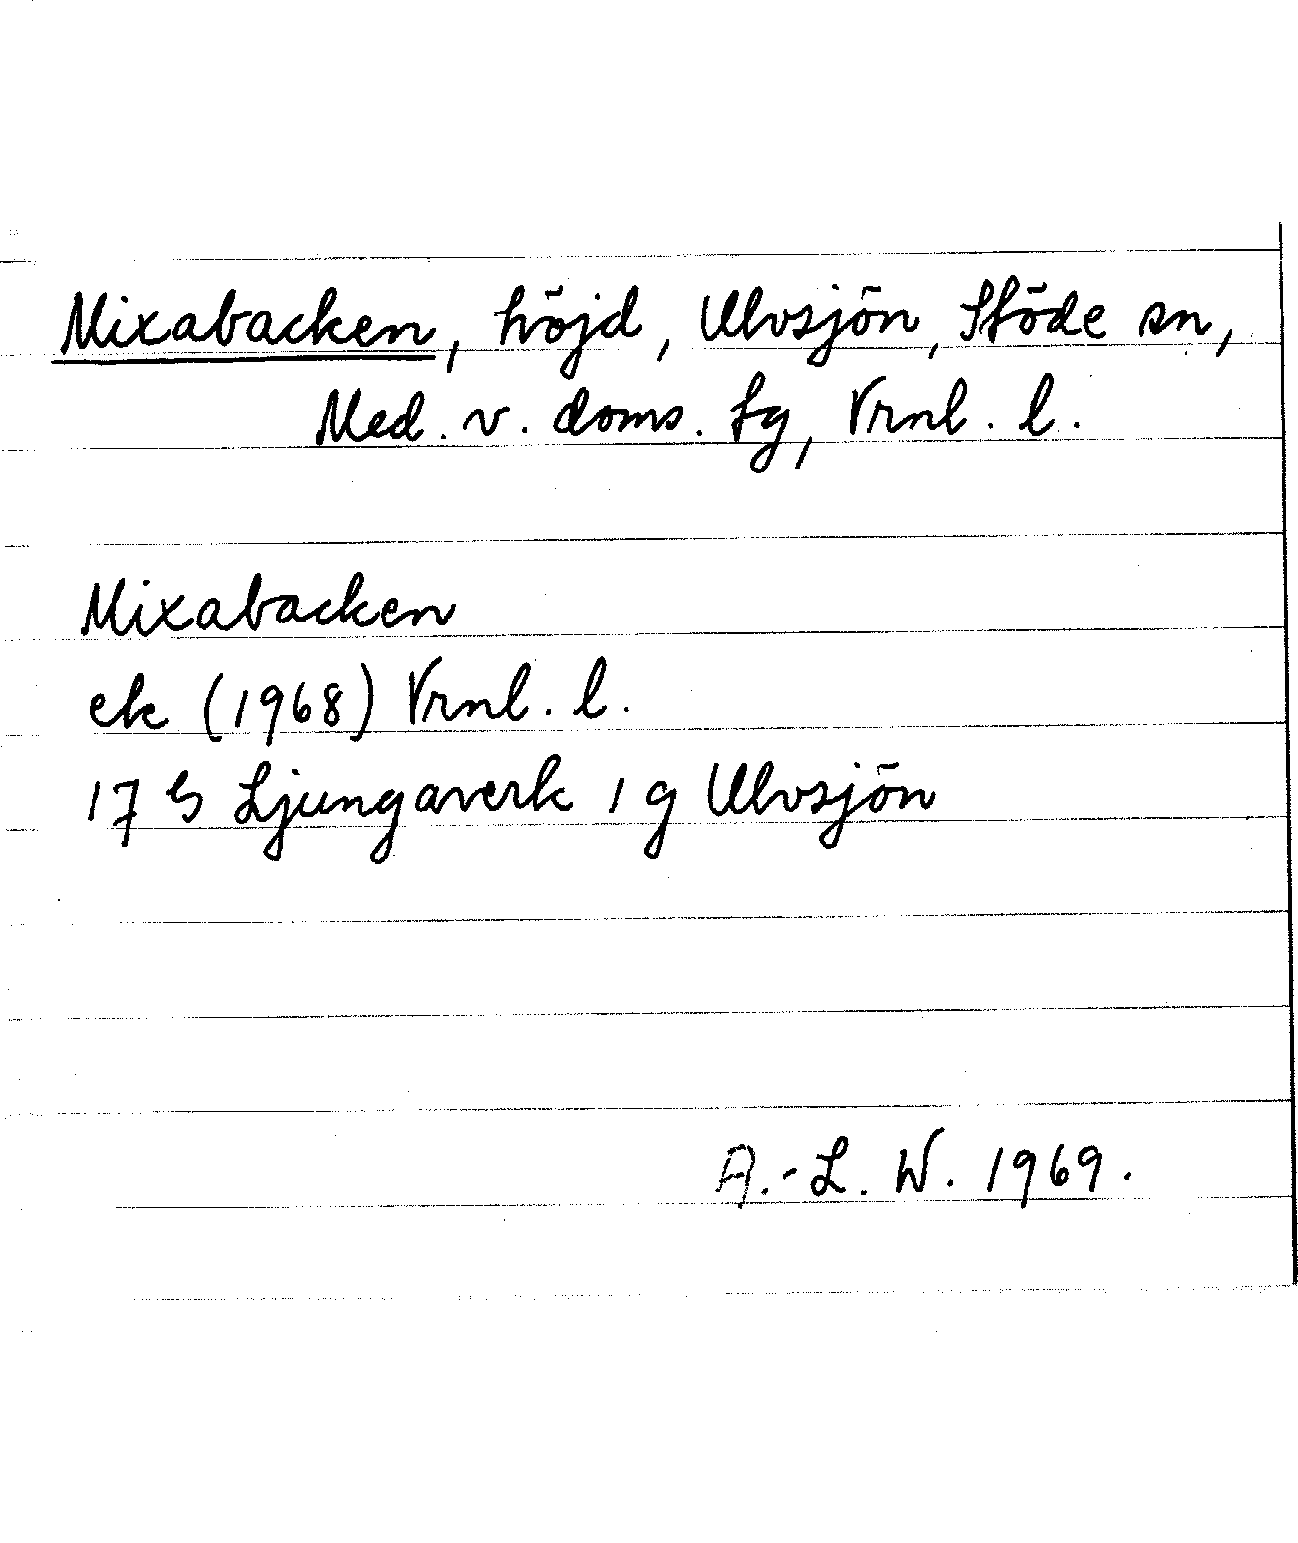 Mixabacken, höjd, Ulvsjön, Stöde sn,
Med. v. doms. fg, Vrnl. l.
Mixabacken
ek (1968) Vrnl. l.
17 G Ljungaverk 1 g Ulvsjön
A.-L. W. 1969.